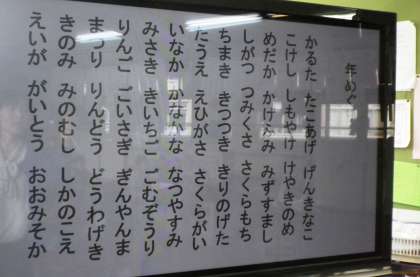 年めぐ
かるた たこあげ げんきなこ
こけし しもやけ けやきのめ
めだか かげふみ みずすまし
しがつ つみくさ さくらもち
ちまき きつつき きりのげた
たうえ えひがさ さくらがい
いなか かなかな なつやすみ
みさき きいちご ごむぞうり
りんご ごいさぎ ぎんやんま
まつり りんどう どうわげき
きのみ みのむし しかのこえ
えいが がいとう おおみそか